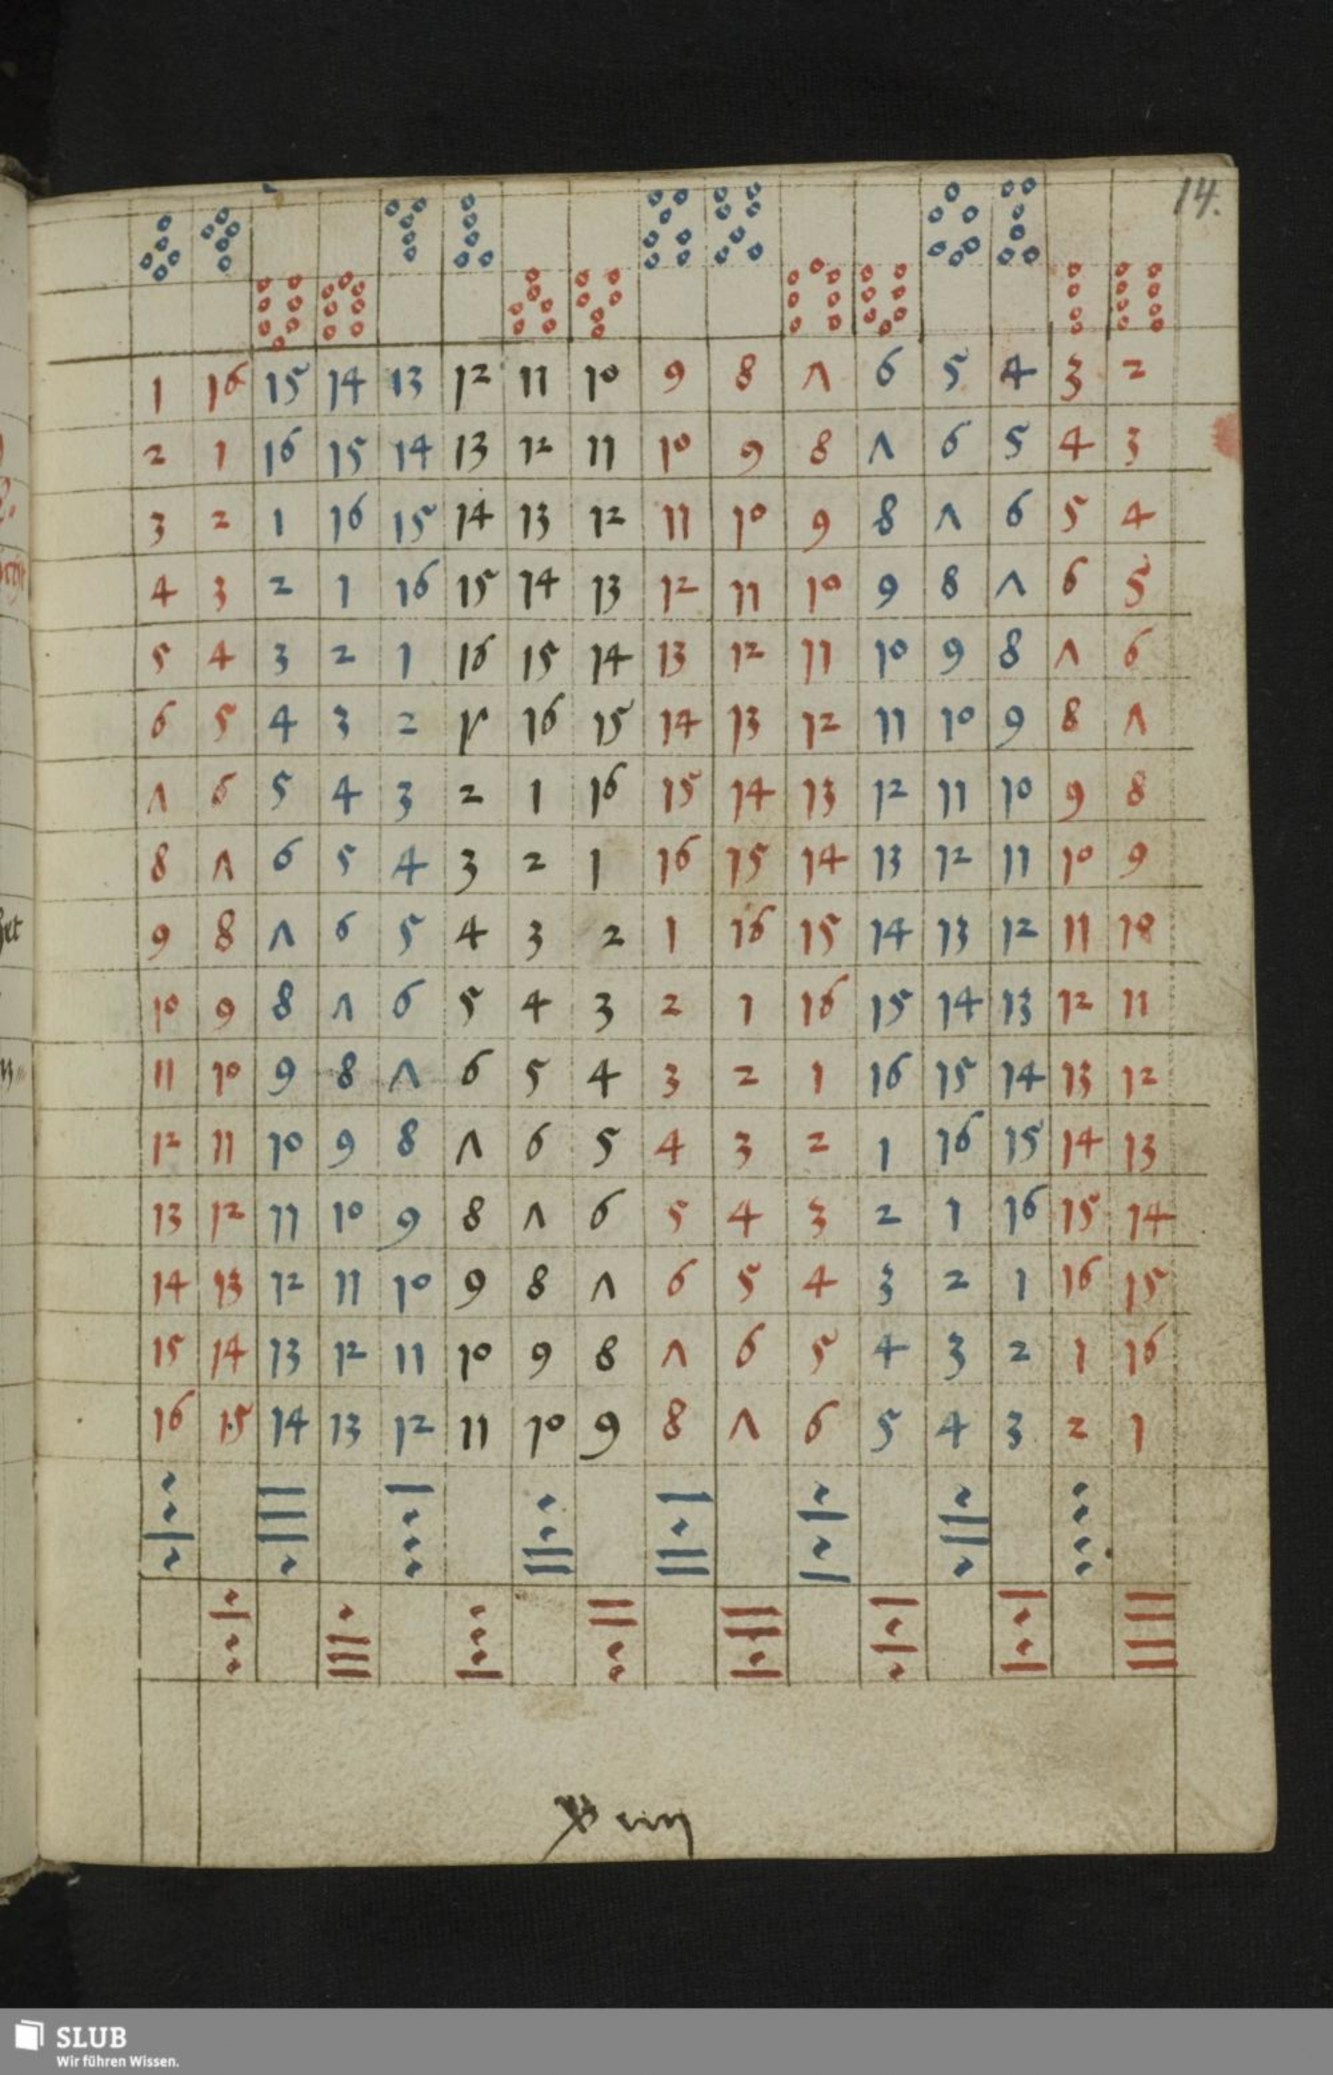 14.
1 16 15 14 13 12 11 10 9 8 Λ 6 5 4 3 2
2 1 16 15 14 13 12 11 10 9 8 Λ 6 5 4 3
3 2 1 16 15 14 13 12 11 10 9 8 Λ 6 5 4
4 3 2 1 16 15 14 13 12 11 10 9 8 Λ 6 5
5 4 3 2 1 16 15 14 13 12 11 10 9 8 Λ 6
6 5 4 3 2 1 16 15 14 13 12 11 10 9 8 Λ
Λ 6 5 4 3 2 1 16 15 14 13 12 11 10 9 8
8 Λ 6 5 4 3 2 1 16 15 14 13 12 11 10 9
9 8 Λ 6 5 4 3 2 1 16 15 14 13 12 11 10
10 9 8 Λ 6 5 4 3 2 1 16 15 14 13 12 11
11 10 9 8 Λ 6 5 4 3 2 1 16 15 14 13 12
12 11 10 9 8 Λ 6 5 4 3 2 1 16 15 14 13
13 12 11 10 9 8 Λ 6 5 4 3 2 1 16 15 14
14 13 12 11 10 9 8 Λ 6 5 4 3 2 1 16 15
15 14 13 12 11 10 9 8 Λ 6 5 4 3 2 1 16
16 15 14 13 12 11 10 9 8 Λ 6 5 4 3 2 1
SLUB
Wir führen Wissen.